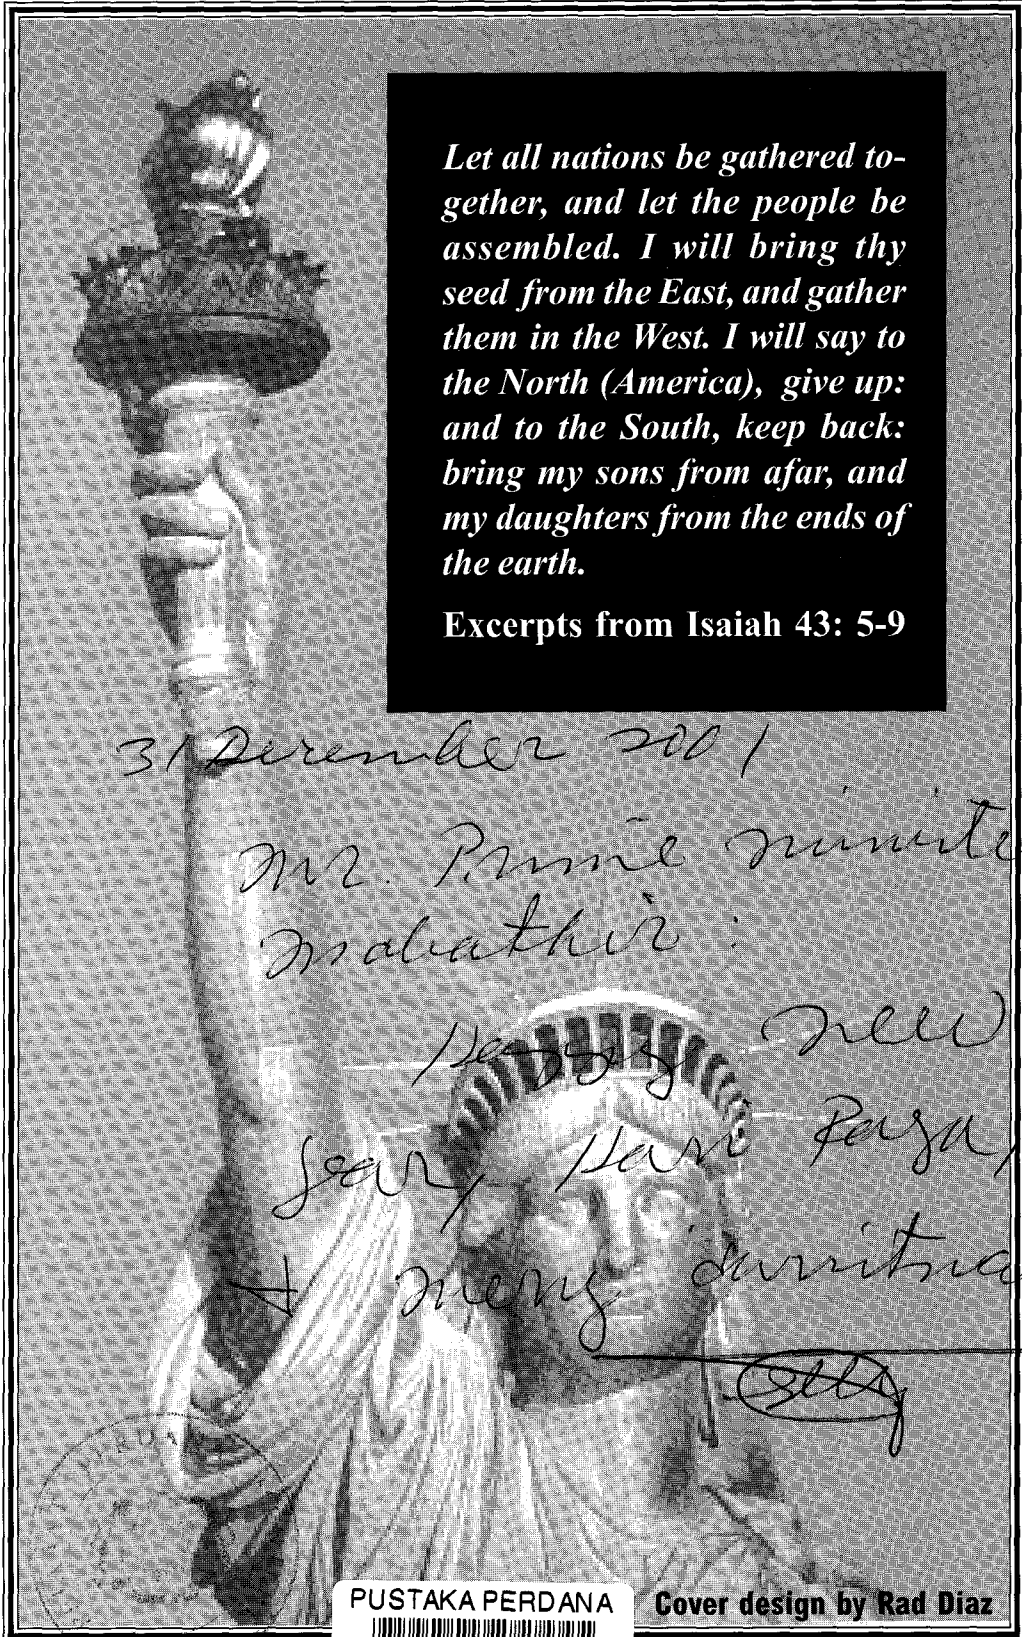 Let all nations be gathered to-
gether, and let the people be
assembled. I will bring thy
seed from the East, and gather
them in the West. I will say to
the North (America), give up:
and to the South, keep back:
bring my sons from afar, and
my daughters from the ends of
the earth.
Excerpts from Isaiah 43: 5-9
31 December 2001
Mr. Prime
Mahathir
Happy new
year, Hari Raya,
+ merry
PUSTAKA PERDANA
Cover design by Rad Diaz